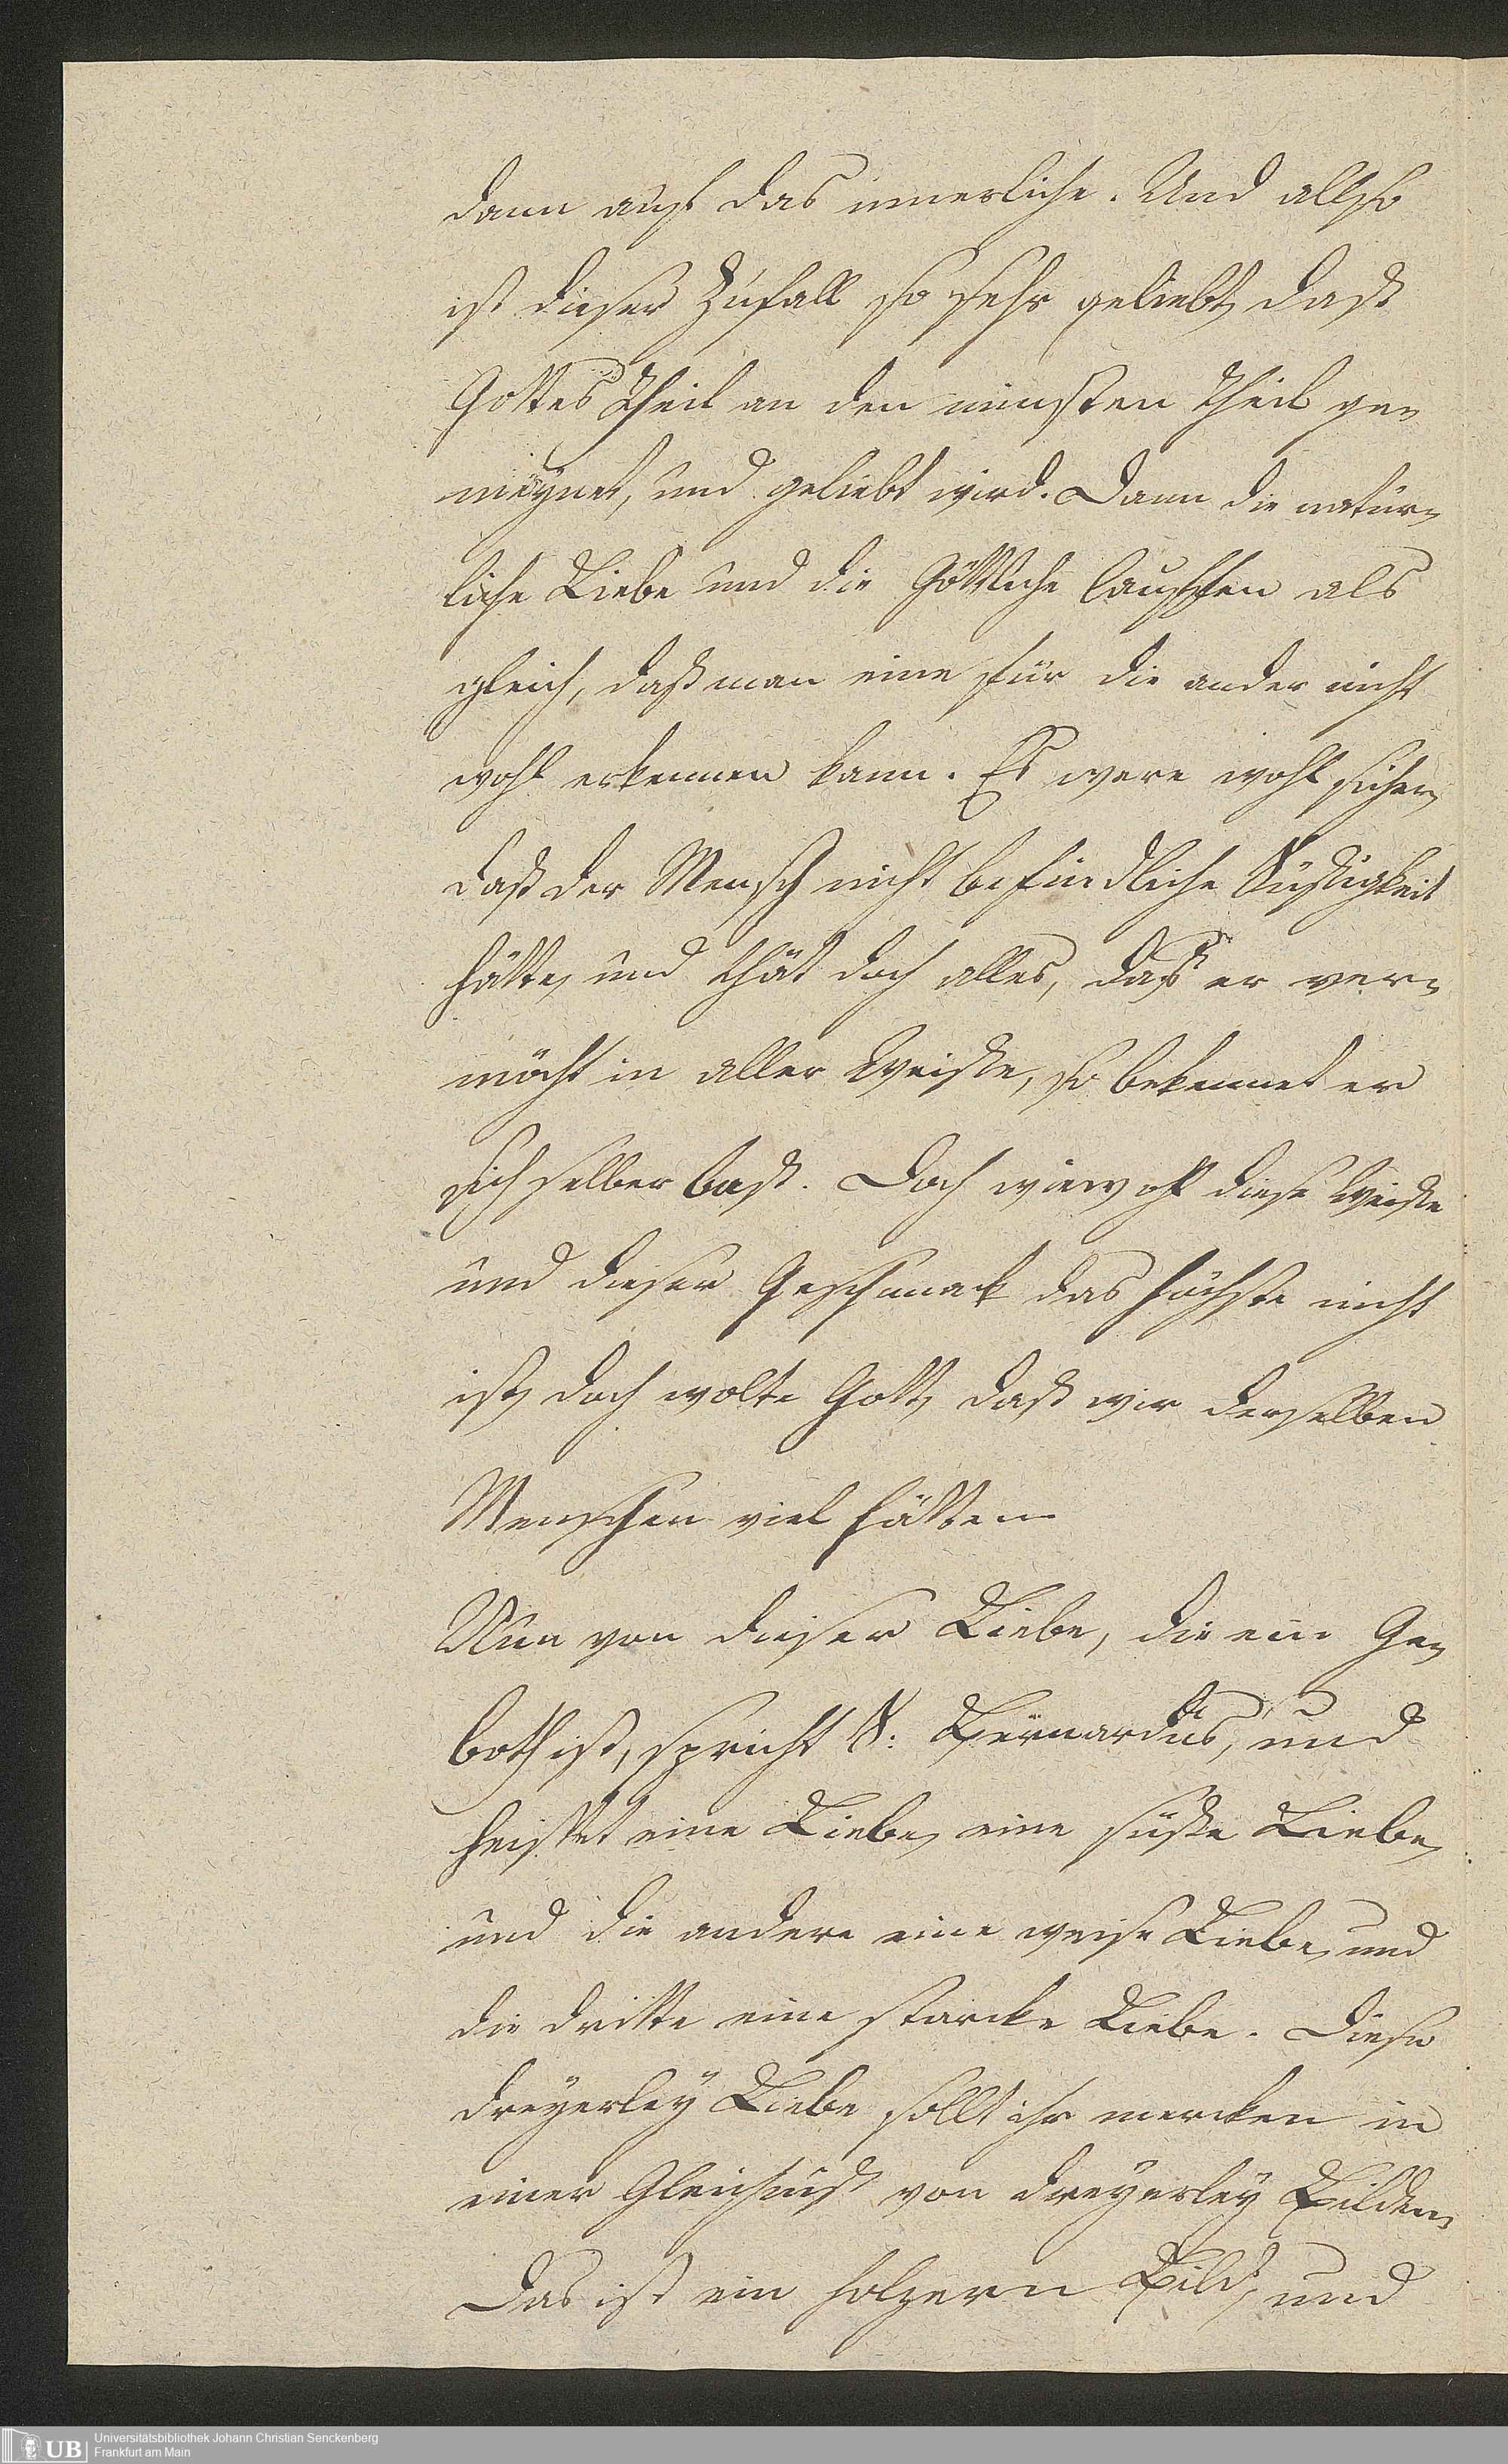 dann auf das innerliche. Und allso
ist dieser Zufall so sehr geliebt, daß
Gottes Theil an den minsten Theil ge„
meynet, und geliebt wird. Dann die natür„
liche Liebe und die Göttliche lauffen als
gleich, daß man eine für die ander nicht
wohl erkennen kann. Es were wohl sicher,
daß der Mensch nicht befindliche Süßigkeit
hätte, und thät doch alles, das er ver„
möcht in aller Weiße, so bekennet er
sich selber baß. Doch wiewohl diese Weiße
und dieser Geschmack das höchste nicht
ist, doch wolte Gott, daß wir derselben
Menschen viel hätten.
Nun von dieser Liebe, die ein Ge„
both ist, spricht S: Bernardus, und
heißet eine Liebe, eine süße Liebe,
und die andere eine weise Liebe, und
die dritte eine starcke Liebe. Diese
dreyerley Liebe sollt ihr mercken in
einer Gleichnuß von dreyerley Bilden,
Das ist ein holzern Bild, und
UB
Universitätsbibliothek Johann Christian Senckenberg
Frankfurt am Main